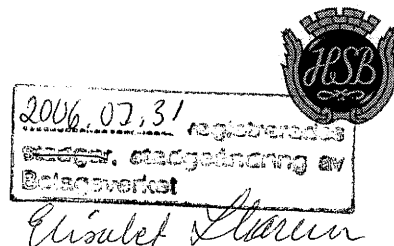 HSB
2006.07.31 registrerades
stadgar, stadgeändring av
Bolagsverket
Elisabet